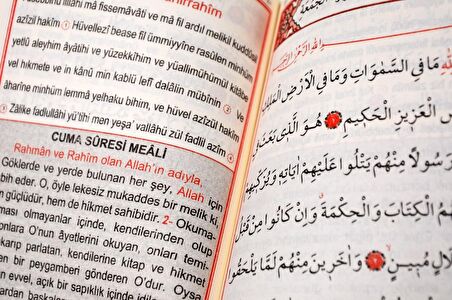 nirrahîm
lillahi mâ fissemâvâti ve mâ fil ardıl melikil kuddûsil
azîzil hakîm Hüvellezî bease fil ümmiyyîne rasûlen minhüm
yetlû aleyhim âyâtihî ve yüzekkîhim ve yüallimühümül kitâbe
vel hikmete ve in kânû min kablü lefî dalâlin mübînin
âharîne minhüm lemmâ yelhaku bihim, ve hüvel azîzül hakîm
Zâlike fadlullâhi yü'tîhi men yeşa' vallâhü zül fadlil azîm
CUMA SÛRESİ MEÂLİ
Rahmân ve Rahîm olan Allah'ın adıyla,
Göklerde ve yerde bulunan her şey, Allah için
bih eder. O, öyle lekesiz mukaddes bir melik ki,
n güçlüdür, hem de hikmet sahibidir. 2- Okuma
ması olmayanlar içinde, kendilerinden olup
onlara O'nun âyetlerini okuyan, onları temi-
karıp parlatan, kendilerine kitap ve hikmet
en bir peygamberi gönderen O'dur. Oysa
en evvel, açık bir sapıklık içinde idi
مَا فِي السَّمٰوَاتِ وَمَا فِي الْاَرْضِ الْمَلِكِ
الْعَزِيزِ الْحَكِيمِ هُوَ الَّذِي بَعَثَ
رَسُولًا مِنْهُمْ يَتْلُوا عَلَيْهِمْ اٰيَاتِهِ وَيُزَكِّيهِمْ
هُمُ الْكِتَابَ وَالْحِكْمَةَ وَاِنْ كَانُوا مِنْ قَبْلُ
لَالٍ مُبِينٍ وَاٰخَرِينَ مِنْهُمْ لَمَّا يَلْحَقُوا